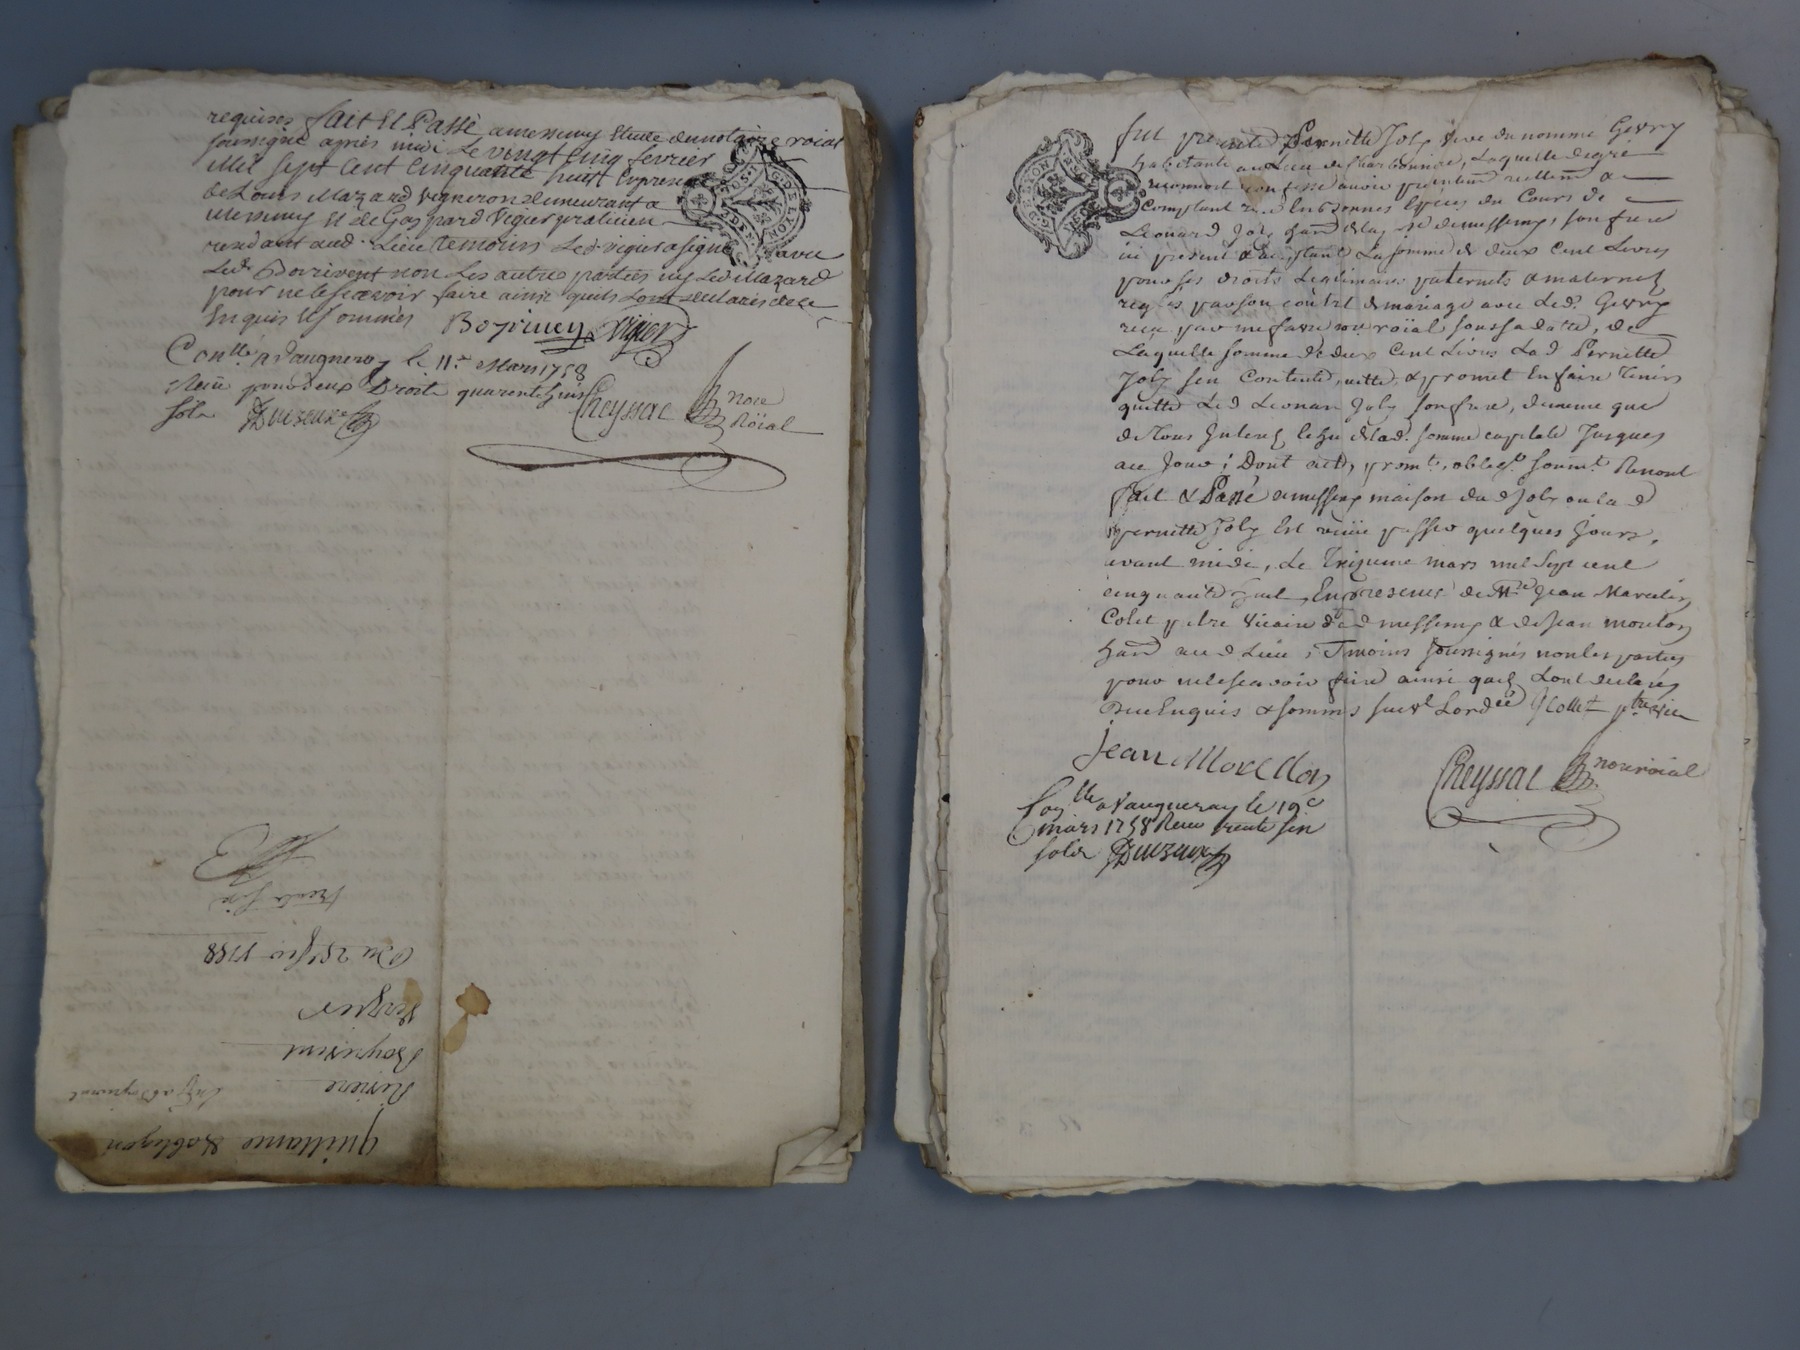 requises fait et Passé a messimy Etude du notaire roial
soussigné après midi Le vingt cinq fevrier
Mil sept cent cinquante huit En presence
de Louis Mazard vigneron demeurant a
Messimy et de Gaspard Vigier praticien
residant aud. Lieu temoins Led. vigier a signé avec
Led. Boyrivent non Les autres parties ny Led Mazard
pour ne le scavoir faire ainsi quils Lont declarés de ce
Enquis et sommés Boyriven Vigier
Conllé a Vaugneray le 11e Mars 1758
Reçu pour deux Droits quarente huit
sols Duizeux
Cheyssac nore
Röial
GEN. DE LYON
Guittance
Riviere
Boyrivent
Vergier
Du 25 fev 1758
trente six
GEN. DE LYON
fut presente Pernette Joly veve du nomme Gevry
habitante au Lieu de Charbonniere, Laquelle de gré
reconnoit confesse avoir presentem reellem a
Comptant en bonnes Especes du Cours de
Leonard Joly de messimy, son frere
ici present & acceptant La somme de deux Cent Livres
pour ses droits Legitimaires paternels & maternels
reglés par son contrat de mariage avec Led. Gevry
recu par me favre nore roïal sous sa datte, de
Laquelle somme de deux Cent Livres Lad Pernette
Joly sen Contente, quitte, & promet En faire Tenir
quitte Led Leonard Joly son frere, de meme que
de Tous Interets de lad. somme capitale Jusques
au Jour; Dont acte, promt., obligt. soumt. Renont
fait & Passé a messimy maison dud Joly ou la d
pernette Joly Est venüe passer quelques Jours,
avant midi, Le Treizieme mars mil sept cent
cinquante huit, En presence de Mre Jean Marcelin
Colet petre Vicaire dud messimy & de Jean morellon
aud. Lieu; Temoins soussignés non les parties
pour ne le scavoir faire ainsi quels Lont declarés
De ce Enquis & sommés suivt Lordce JColet ptre vic
Jean Morellon
Cheyssac nore roial
Conllé a Vaugneray le 19e
mars 1758 Recu trente six
sols Duizeux